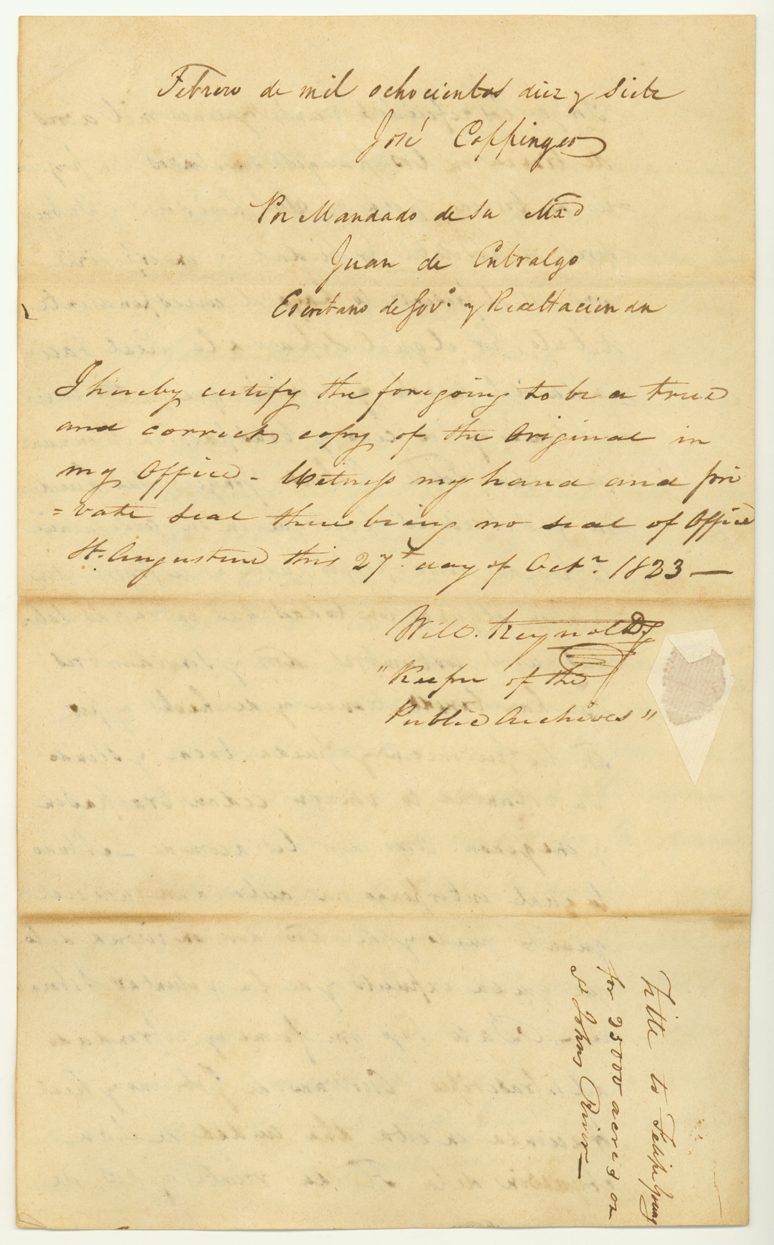 Febrero de mil ochocientos diez y siete
José Coppinger
Por Mandado de su
Juan de Entralgo
Escribano de Gov.º y
I hereby certify the foregoing to be a true
and correct copy of the Original in
my Office - Witness my hand and pri
=vate seal there being no seal of Office
St. Augustine this 27th day of Octr. 1823 —
Will. Reynolds
"Keeper of the
Public Archives"
Title to Felipe
for 25000 acres on
St Johns River —